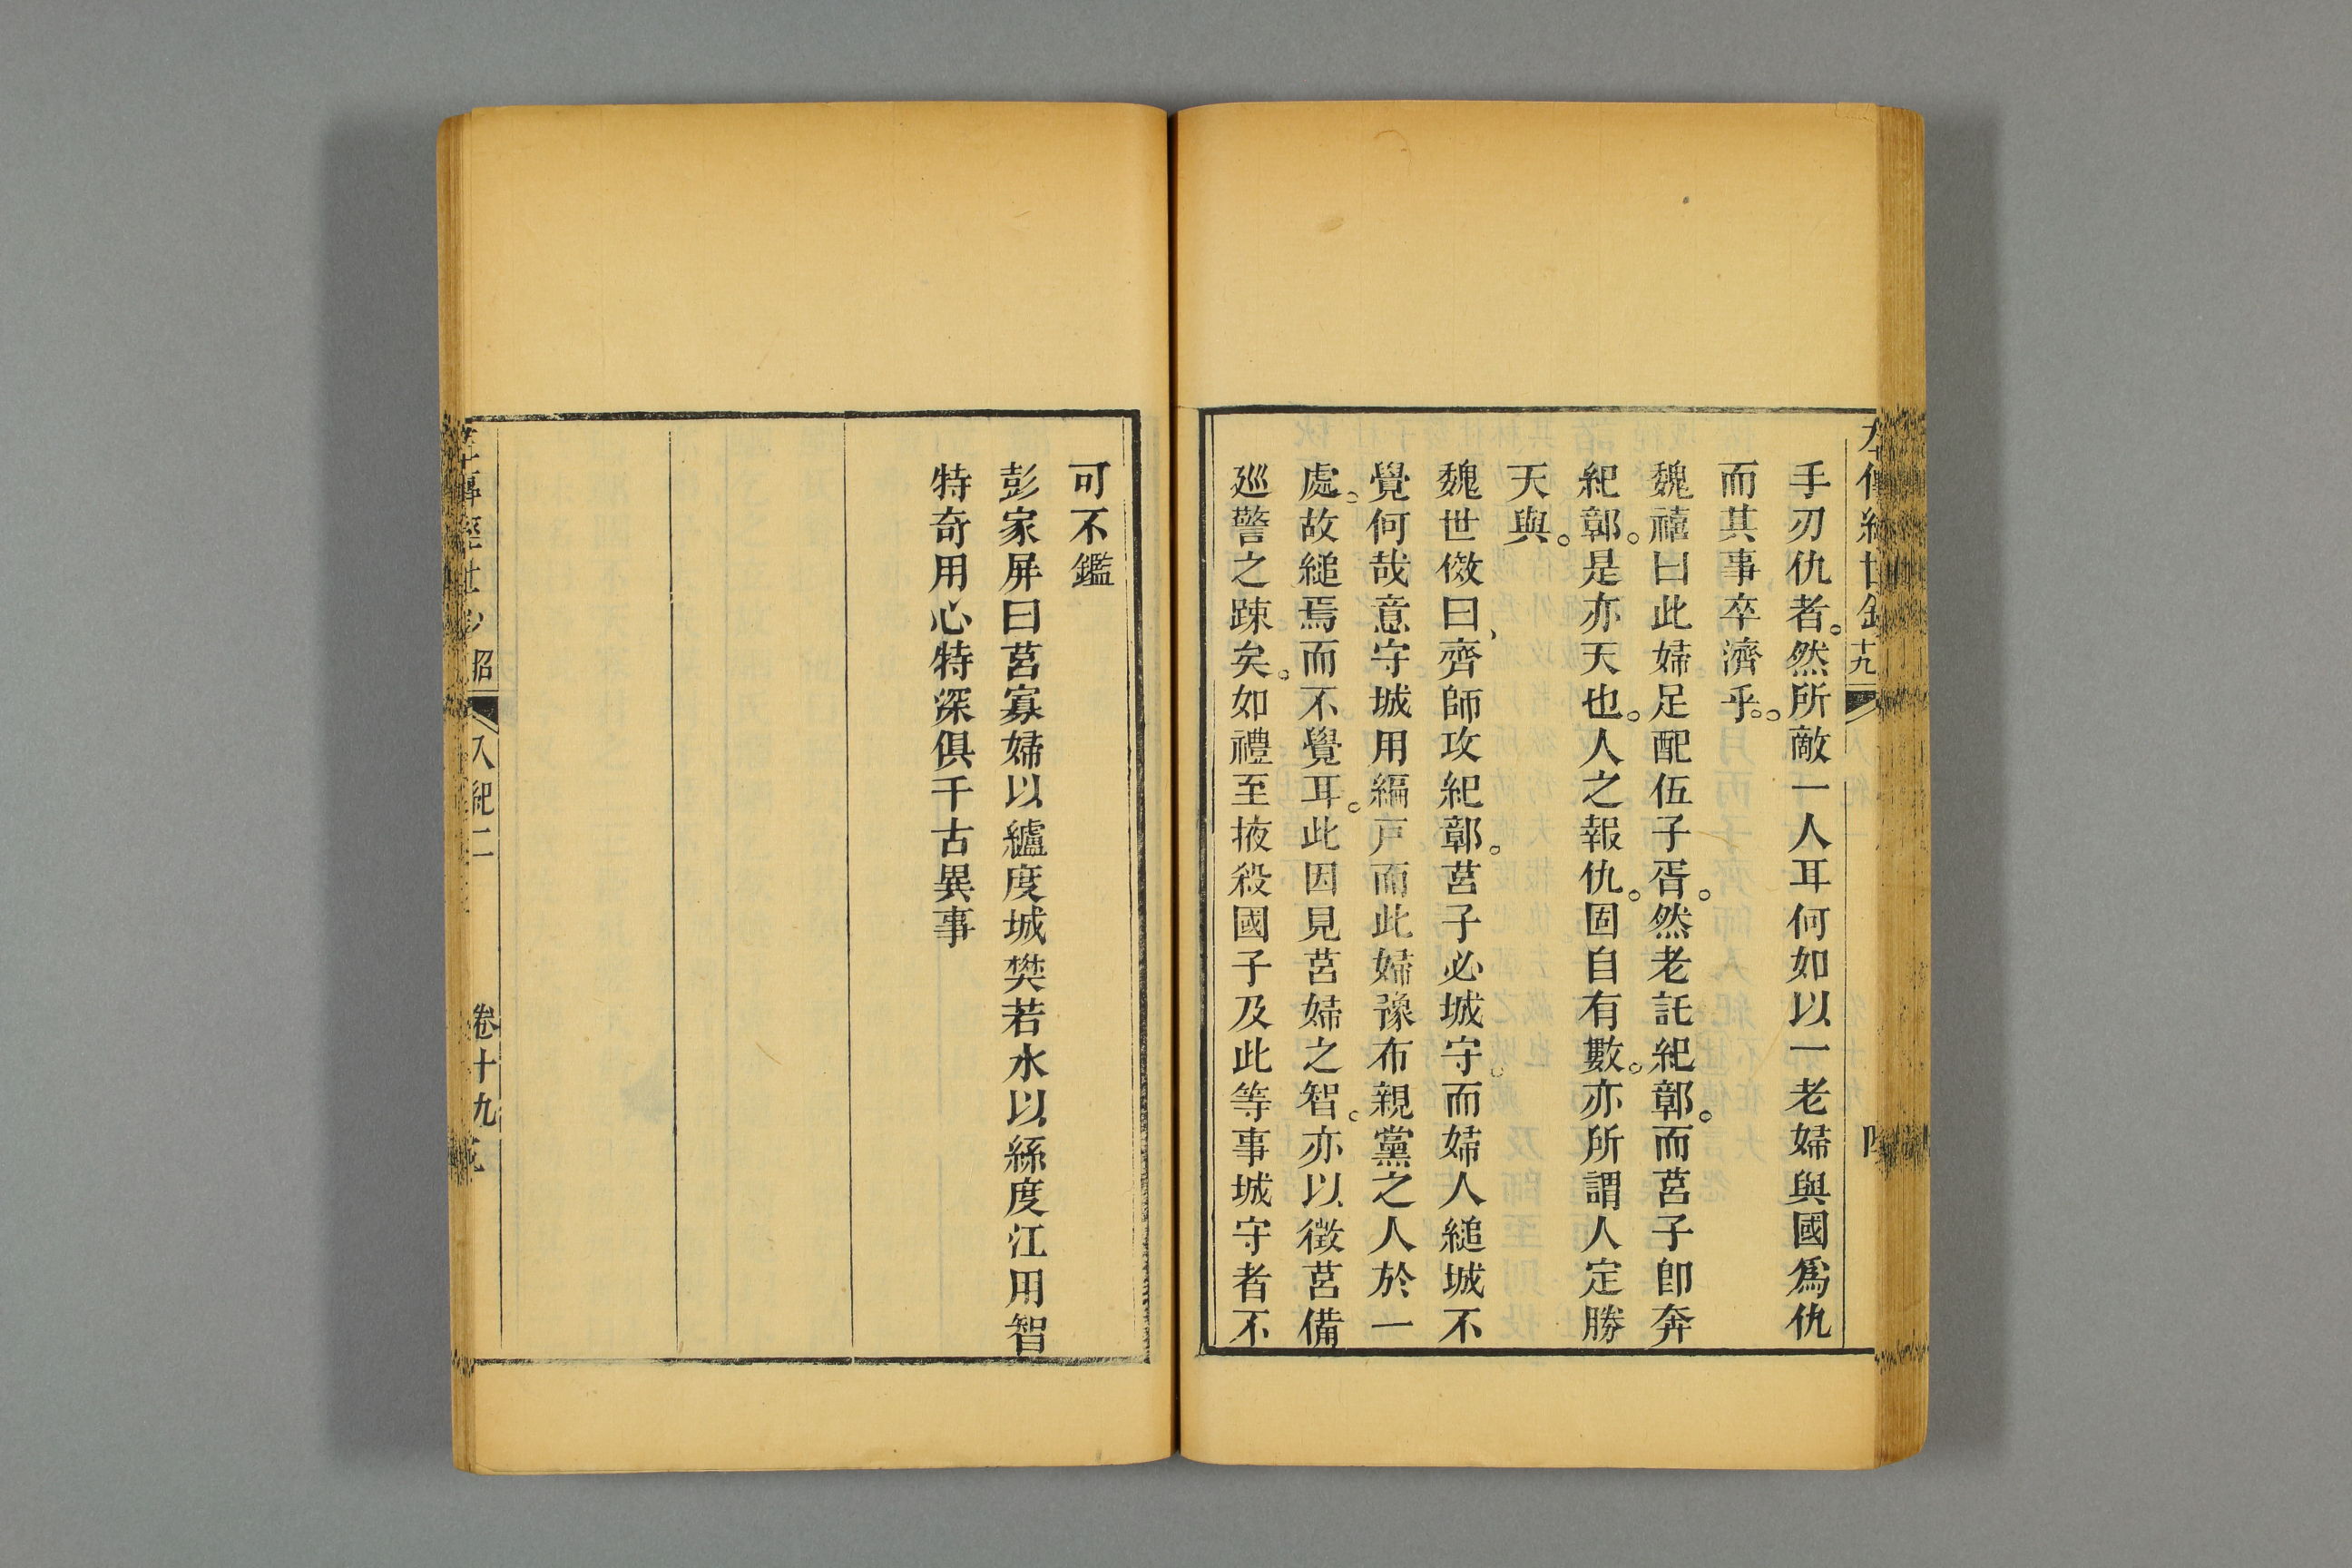 左傳經世鈔十九
手刃仇者。然所敵一人耳何如以一老婦與國爲仇
而其事卒濟乎。
魏禧曰此婦足配伍子胥。然老託紀鄣。而莒子卽奔
紀鄣。是亦天也。人之報仇。固自有數。亦所謂人定勝
天與。
魏世傚曰、齊師攻紀鄣。莒子必城守。而婦人縋城不
覺何哉意守城用編戸而此婦豫布親黨之人於一
處。故縋焉而不覺耳。此因見莒婦之智。亦以徵莒備
廵警之踈矣。如禮至掖殺國子及此等事城守者不
可不鑑
彭家屏曰莒寡婦以纑度城樊若水以絲度江用智
特奇用心特深俱千古異事
左傳經世鈔 昭 入紀二 卷十九